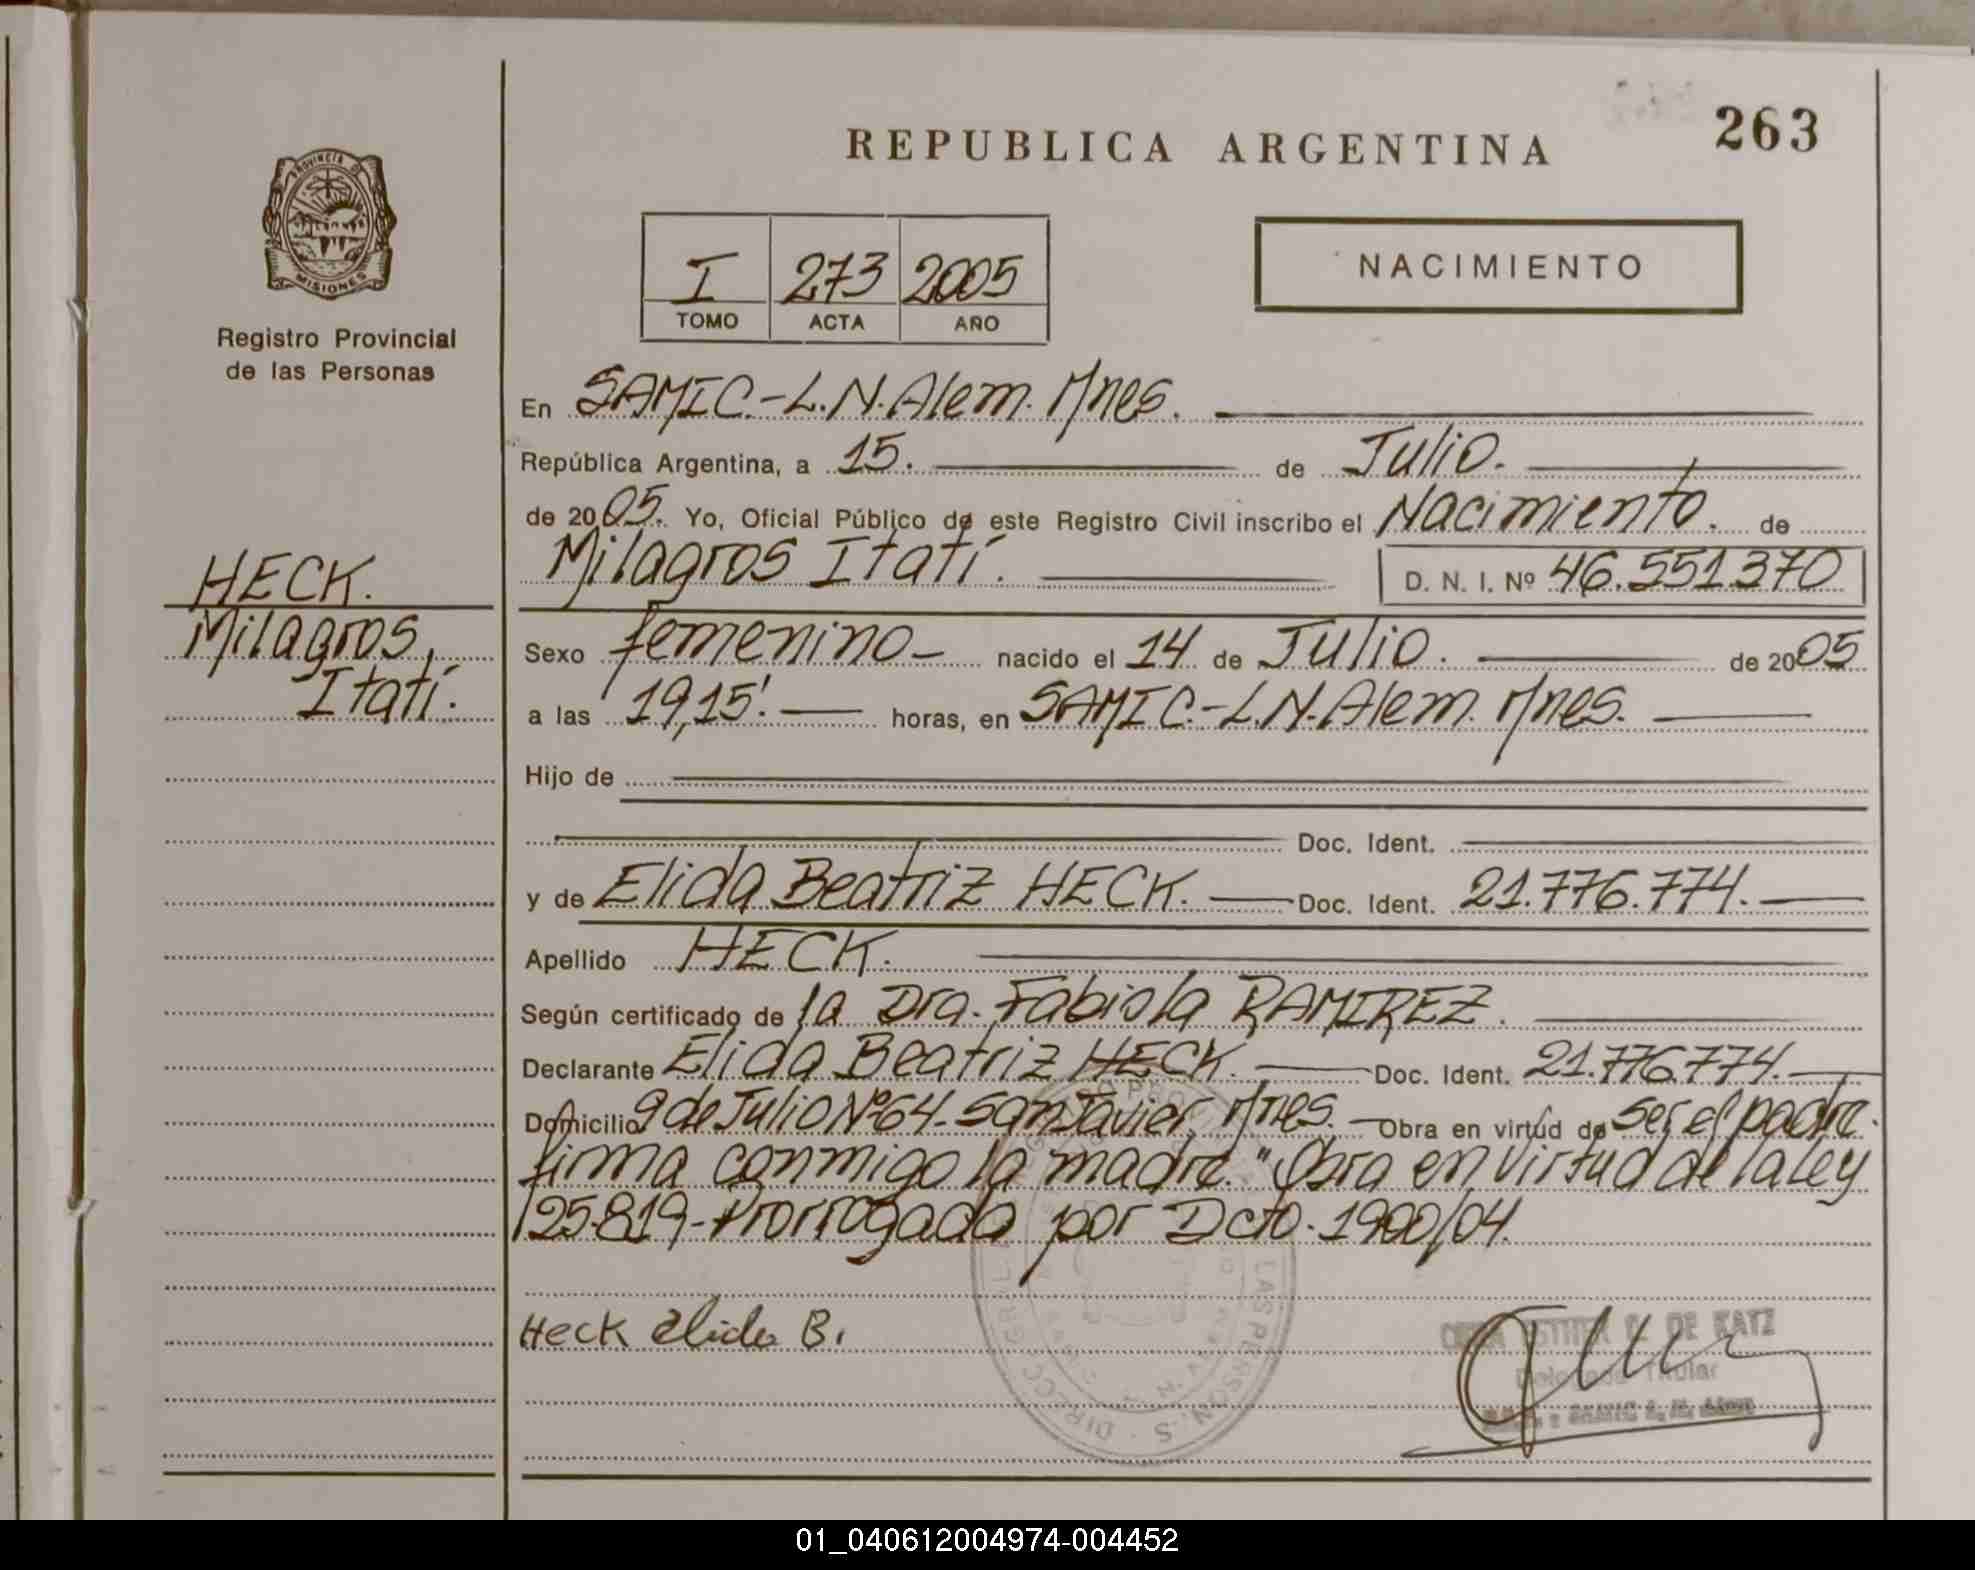 REPUBLICA ARGENTINA
263
PROVINCIA DE
MISIONES
Registro Provincial
de las Personas
I 273 2005
TOMO ACTA AÑO
NACIMIENTO
En SAMIC.-L.N.Alem. Mnes.
República Argentina, a 15. de Julio.
de 2005. Yo, Oficial Público de este Registro Civil inscribo el Nacimiento. de
Milagros Itatí. D. N. I. Nº 46.551.370
HECK.
Milagros
Itatí.
Sexo femenino- nacido el 14 de Julio. de 2005
a las 19,15'. horas, en SAMIC.-L.N.Alem. Mnes.
Hijo de
Doc. Ident.
y de Elida Beatriz HECK. Doc. Ident. 21.776.774.
Apellido HECK.
Según certificado de la Dra. Fabiola RAMIREZ.
Declarante Elida Beatriz HECK. Doc. Ident. 21.776.774.
Domicilio 9 de Julio Nº64-San Javier, Mnes. Obra en virtud de ser el padre.
firma conmigo la madre." Obra en virtud de la ley
25.819-Prorrogada por Dcto. 1900/04.
Heck Elida B.
DE KATZ
Titular
SAMIC L. N. ALEM
LAS PERSONAS
01_040612004974-004452